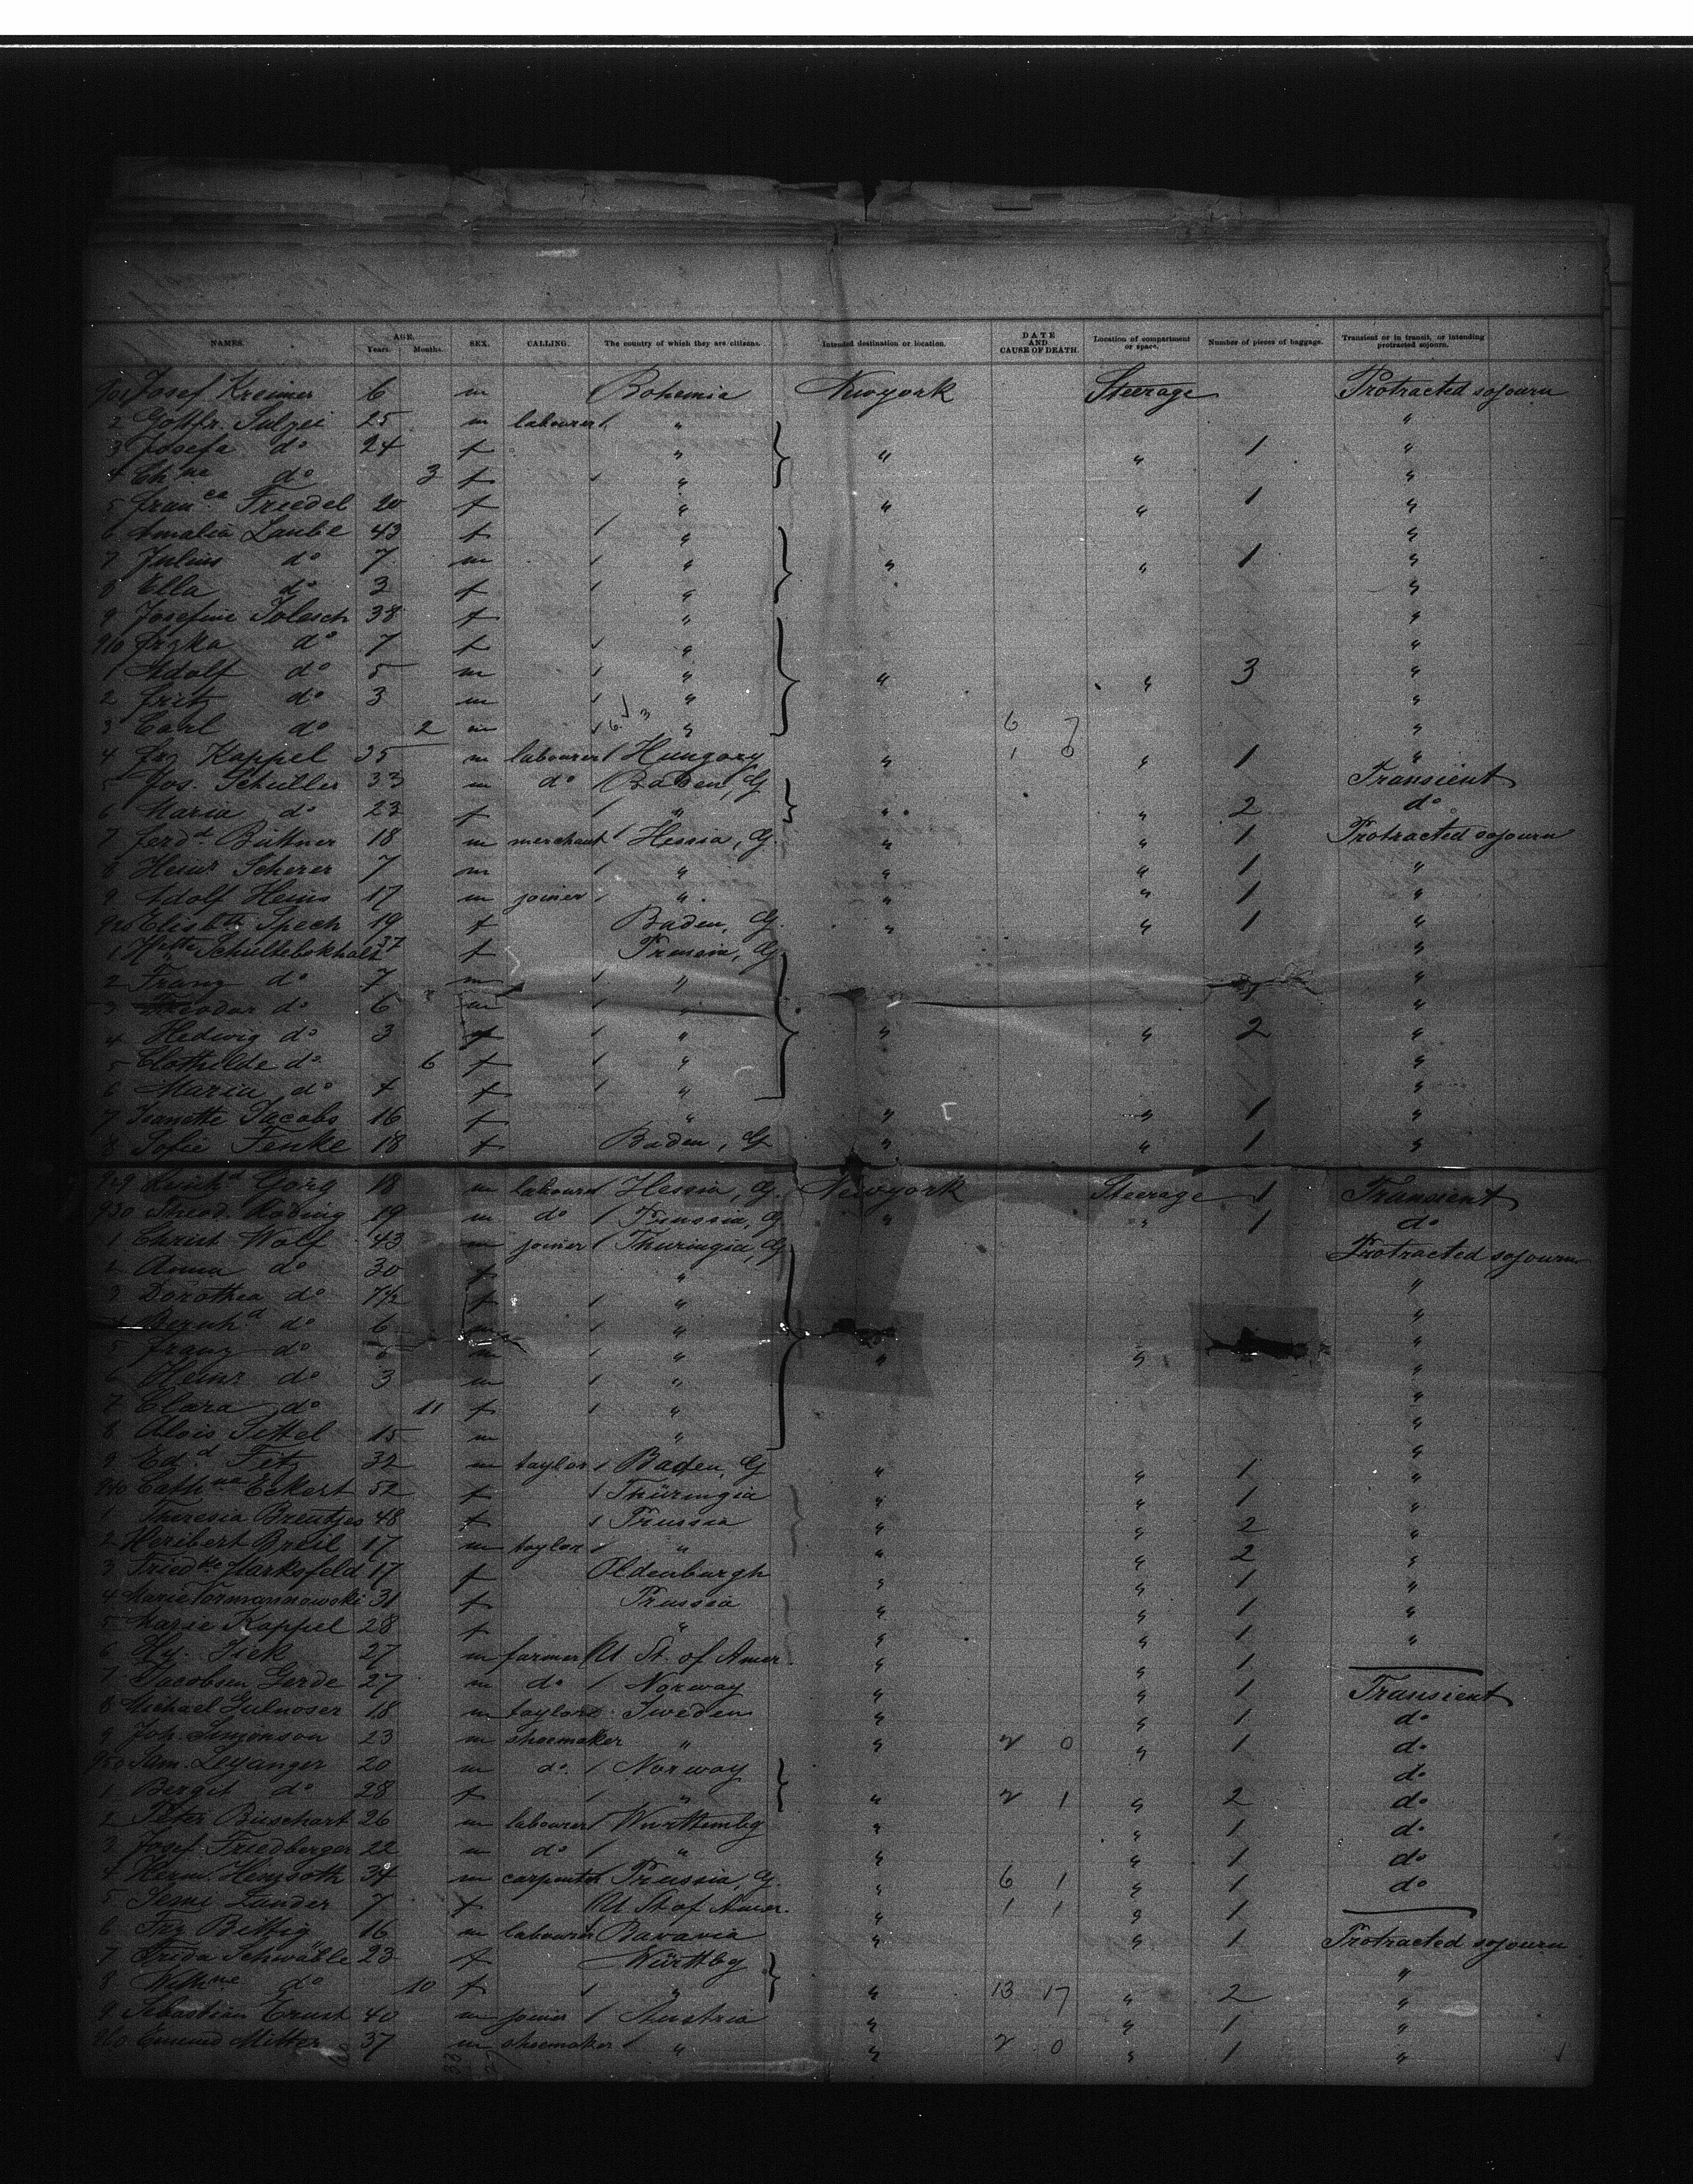 NAMES. AGE. Years. Months. SEX. CALLING. The country of which they are citizens. Intended destination or location. DATE AND CAUSE OF DEATH. Location of compartment or space. Number of pieces of baggage. Transient or in transit, or intending protracted sojourn.
901 Josef Kreimer 6 m Bohemia Newyork Steerage Protracted sojourn
2 Gottfr. 25 m labourer " "
3 Josefa do 24 f " " " 1 "
4 Chne do 3 f " "
5 Franca Friedel 20 f " " " 1 "
6 Amalia Laube 43 f " "
7 Julius do 7 m " " " 1 "
8 Ella do 3 f " "
9 Josefine Polesch 38 f " "
910 do 7 f " "
1 Adolf do 5 m " " " 3 "
2 Fritz do 3 m " "
3 Carl do 2 m " 6 7 "
4 Frz Kappel 35 m labourer Hungary " 1 0 " 1 "
5 Jos. Schuller 33 m do Baden, G Transient
6 Maria do 23 f " " " 2 do
7 Ferdd Büttner 18 m merchant Hessia, G. " " 1 Protracted sojourn
8 Heinr Scherer 7 m " " " 1 "
9 Adolf Heins 17 m joiner " " " 1 "
920 Elisbth Spech 19 f Baden, G. " " 1 "
1 37 f Prussia, G. "
2 Franz do 7 m " "
3 Theodor do 6 m " "
4 Hedwig do 3 f " " " 2 "
5 Clothilde do 6 f " "
6 Maria do 4 f " "
7 Jeanette Jacobs 16 f " " " 1 "
8 Sofie Fenke 18 f Baden, G " " 1 "
929 Görg 18 m labourer Hessia, G. Newyork Steerage 1 Transient
930 Theod. Röding 19 m do Prussia, G " " 1 do
1 Christ Wolf 43 m joiner Thuringia, G Protracted sojourn
2 Anna do 30 f " "
3 Dorothea do 7½ f " "
4 Bernhd do 6 m " "
5 Franz do m " " " "
6 Heinr do 3 m " "
7 Clara do 11 f " "
8 Alois Sittel 15 m " "
9 Edd Fitz 32 m taylor Baden, G " " 1 "
940 Cathna Eckert 52 f Thüringia " " 1 "
1 Theresia Brentjes 48 f Prussia " " 2 "
2 Heribert Breil 17 m taylor " " " 2 "
3 Friedke Harksfeld 17 f Oldenburgh " " 1 "
4 Marie 31 f Prussia " " 1 "
5 Marie Kappel 28 f " " " 1 "
6 Hy. Jick 27 m farmer U St. of Amer. " " 1
7 Jacobsen Gerde 27 m do Norway " " 1 Transient
8 Michael 18 m taylor Sweden " " 1 do
9 Joh. Simonson 23 m shoemaker " " 2 0 " 1 do
950 Sam. Leyanger 20 m do. Norway do
1 Bergit do 28 f " " 2 1 " 2 do
2 Peter Büschart 26 m labourer Württembg " " 1 do
3 Josef Friedberger 22 m do " " " 1 do
4 Herm. 34 m carpenter Prussia, G. " 6 1 " 1 do
5 Lander 7 f U St of Amer. " 1 1 " 1
6 Frz Bittig 16 m labourer Bavaria " " 1 Protracted sojourn
7 Frida Schwäble 23 f Württbg "
8 Wilhme do 10 f " " 13 17 " 2 "
9 Sebastian Ernst 40 m joiner Austria " " 1 "
960 Mitter 37 m shoemaker " " 2 0 " 1 "